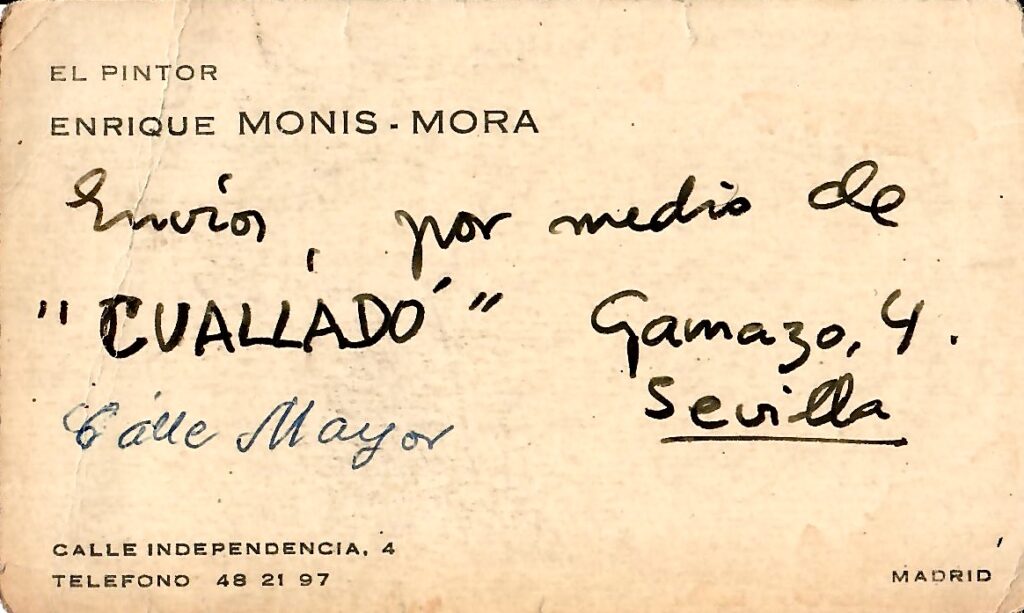 EL PINTOR
ENRIQUE MONIS - MORA
Envíos, por medio de
"CUALLADÓ" Gamazo, 4.
Sevilla
Calle Mayor
CALLE INDEPENDENCIA, 4
TELEFONO 48 21 97
MADRID